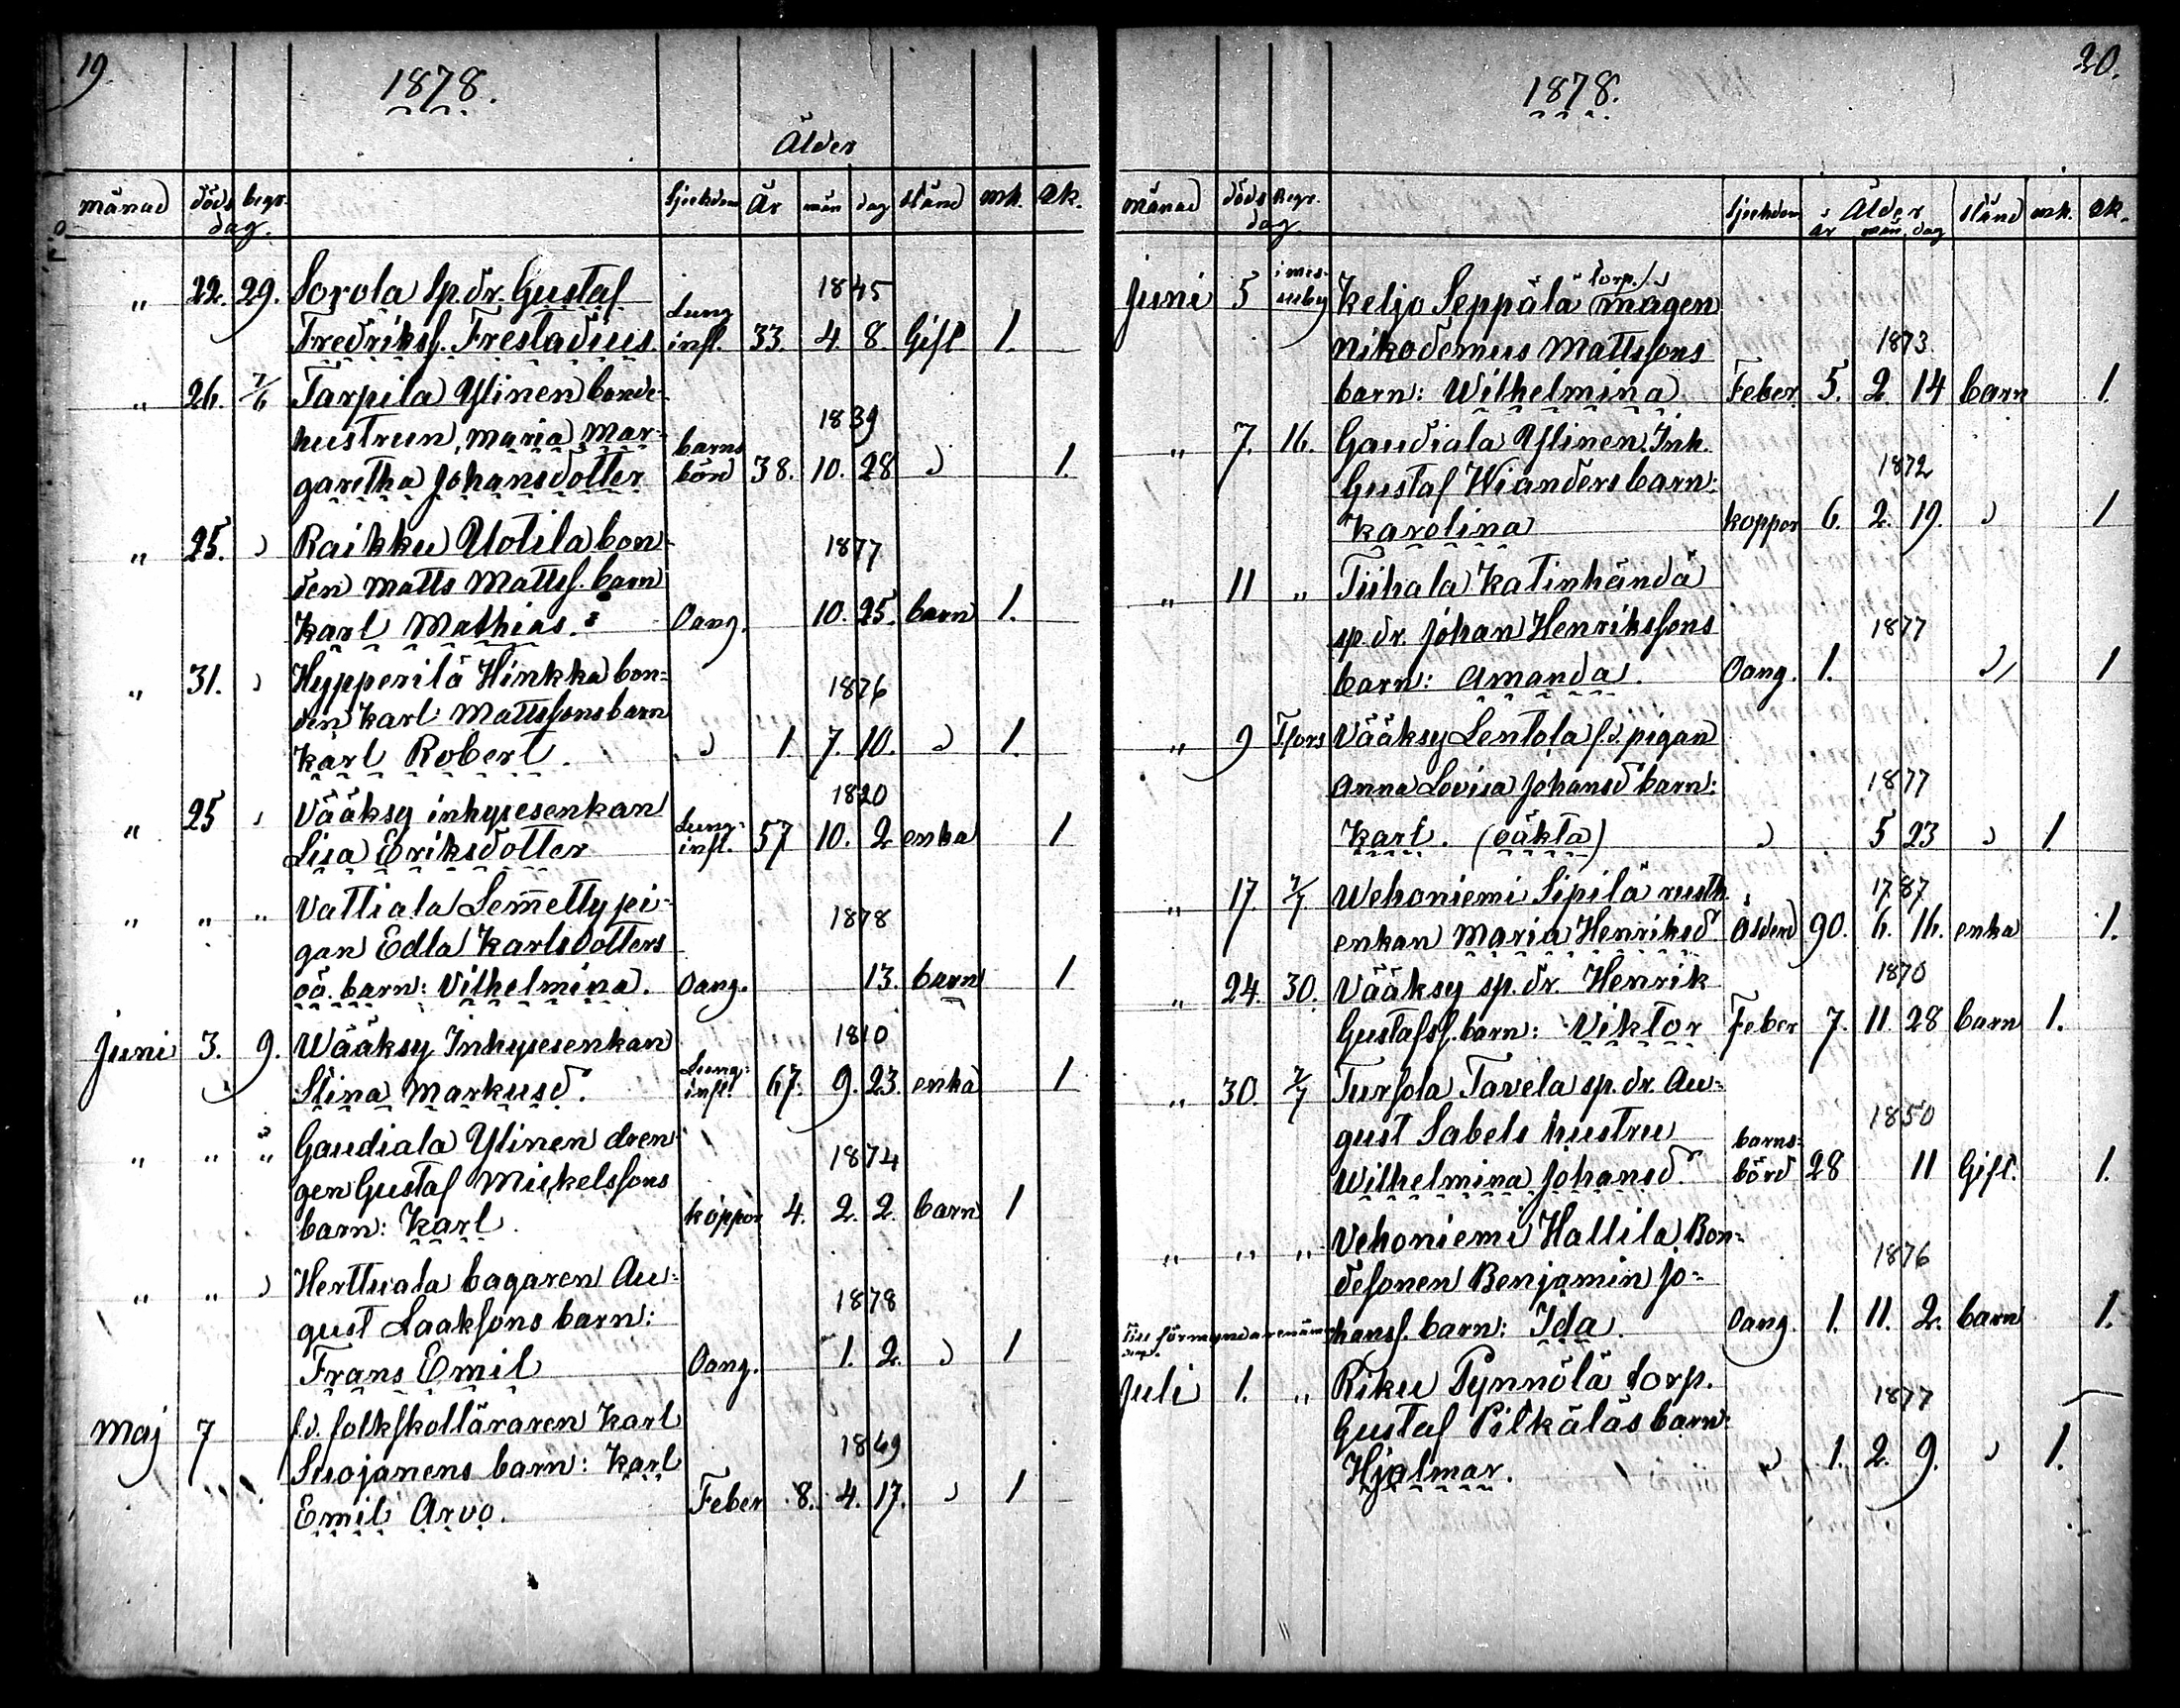 19.
1878.
Ålder
månad döds begr. dag. Sjukdom År mån dag stånd mk. qk.
" 22. 29. Sorola Sp.dr. Gustaf 1845
Fredrikss. Frestadius. Lung infl. 33. 4. 8. Gift 1.
" 26. 7/6 Tarpila Ylinen bonde-
hustrun, Maria Mar- 1839
garetha Johansdotter barns börd 38. 10. 28 " 1.
" 25. " Raikku Uotila bon- 1877
den Matts Mattss. barn
Karl Mathias. Oang. 10. 25. barn 1.
" 31. " Hypperilä Hinkka bon- 1876
den Karl Mattssons barn
Karl Robert. " 1. 7. 10. " 1.
" 25 " Vääksy inhysesenkan 1820
Lisa Eriksdotter Lung- infl. 57 10. 2 enka 1
" " " Vattiala Lemetty pi- 1878
gan Edla Karlsdotters
oä. barn: Vilhelmina. Oang. 13. barn 1
Juni 3. 9. Wääksy Inhysesenkan 1810
Stina Markusd. Lung- infl. 67. 9. 23. enka 1
" " " Gaudiala Ylinen dren- 1874
gen Gustaf Mickelssons
barn: Karl. koppor 4. 2. 2. barn 1
" " " Herttuala bagaren Au-
gust Laaksons barn: 1878
Frans Emil Oang. 1. 2. " 1
Maj 7 f.d. folkskolläraren Karl
Suojanens barn: Karl 1869
Emil Arvo. Feber 8. 4. 17. " 1
20.
1878.
månad döds Begr. dag Sjukdom Ålder år mån dag stånd mk. qk.
Juni 5 Keljo Seppälä torp. mågen
Nikodemus Mattssons 1873
barn: Wilhelmina Feber 5. 2. 14 barn 1.
" 7. 16. Gaudiala Ylinen Inh.
Gustaf Wianders barn: 1872
Karolina koppor 6. 2. 19. " 1
" 11 " Tiihala Katinhändä
sp. dr. Johan Henrikssons 1877
barn: Amanda. Oang. 1. " 1
" 9 T.fors Vääksy Lentola f.d. pigan
Anna Lovisa Johansd barn: 1877
Karl. (oäkta) " 5 23 " 1.
" 17. 7/7 Wehoniemi Sipilä rusth. 1787
enkan Maria Henriksd Ålderd 90. 6. 16. enka 1.
" 24. 30. Vääksy sp.dr. Henrik 1870
Gustafss. barn: Viktor Feber 7. 11. 28 barn 1.
" 30. 7/7 Tursola Tavela sp. dr. Au-
gust Sabels hustru 1850
Wilhelmina Johansd. barns- börd 28 11 Gift. 1.
" " " Vehoniemi Hallila Bon-
desonen Benjamin Jo- 1876
hanss. barn: Ida. Oang. 1. 11. 2. barn 1.
Juli 1. " Riku Pynnölä torp.
Gustaf Pilkäläs barn: 1877
Hjalmar. " 1. 2. 9. " 1.